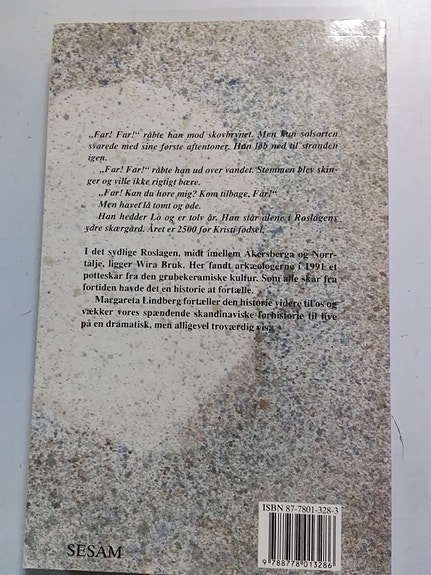 „Far! Far!“ råbte han mod skovbrynet. Men kun solsorten
svarede med sine første aftentoner. Han løb ned til stranden
igen.
„Far! Far!“ råbte han ud over vandet. Stemmen blev skin-
ger og ville ikke rigtigt bære.
„Far! Kan du høre mig? Kom tilbage, Far!“
Men havet lå tomt og øde.
Han hedder Lo og er tolv år. Han står alene i Roslagens
ydre skærgård. Året er 2500 før Kristi fødsel.
I det sydlige Roslagen, midt imellem Åkersberga og Norr-
tälje, ligger Wira Bruk. Her fandt arkæologerne i 1991 et
potteskår fra den grubekeramiske kultur. Som alle skår fra
fortiden havde det en historie at fortælle.
Margareta Lindberg fortæller den historie videre til os og
vækker vores spændende skandinaviske forhistorie til live
på en dramatisk, men alligevel troværdig vis.
ISBN 87-7801-328-3
9 788778 013286
SESAM